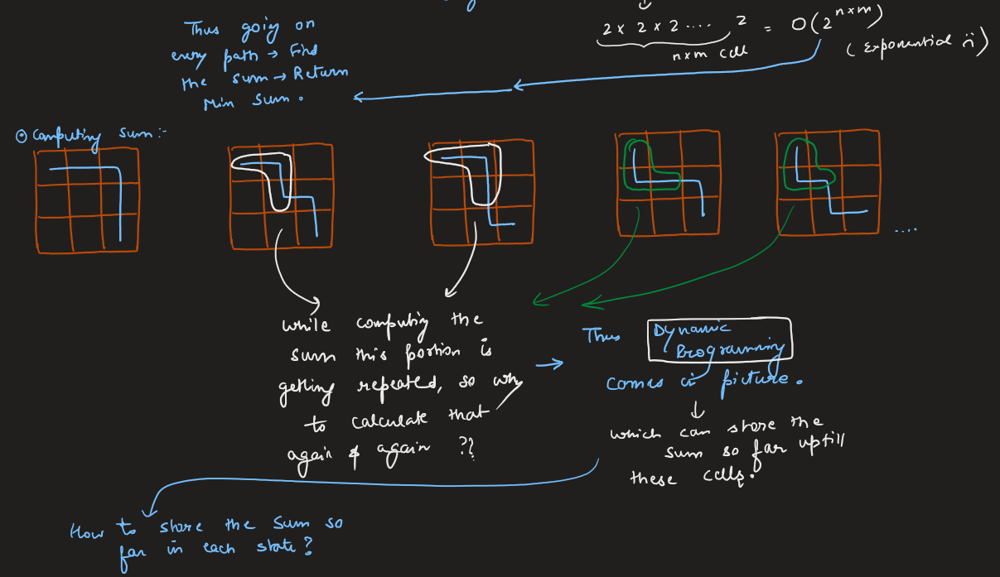 Thus going on
every path → Find
the sum → Return
Min Sum.
2 x 2 x 2 .... 2 = O(2^(n×m))
n×m cell
(Exponential ☹)
⊙ Computing Sum:-
....
while computing the
sum this portion is
getting repeated, so why
to calculate that
again & again ??
→ Thus Dynamic
Programming
comes in picture.
which can store the
sum so far uptill
these cells.
How to store the sum so
far in each state?